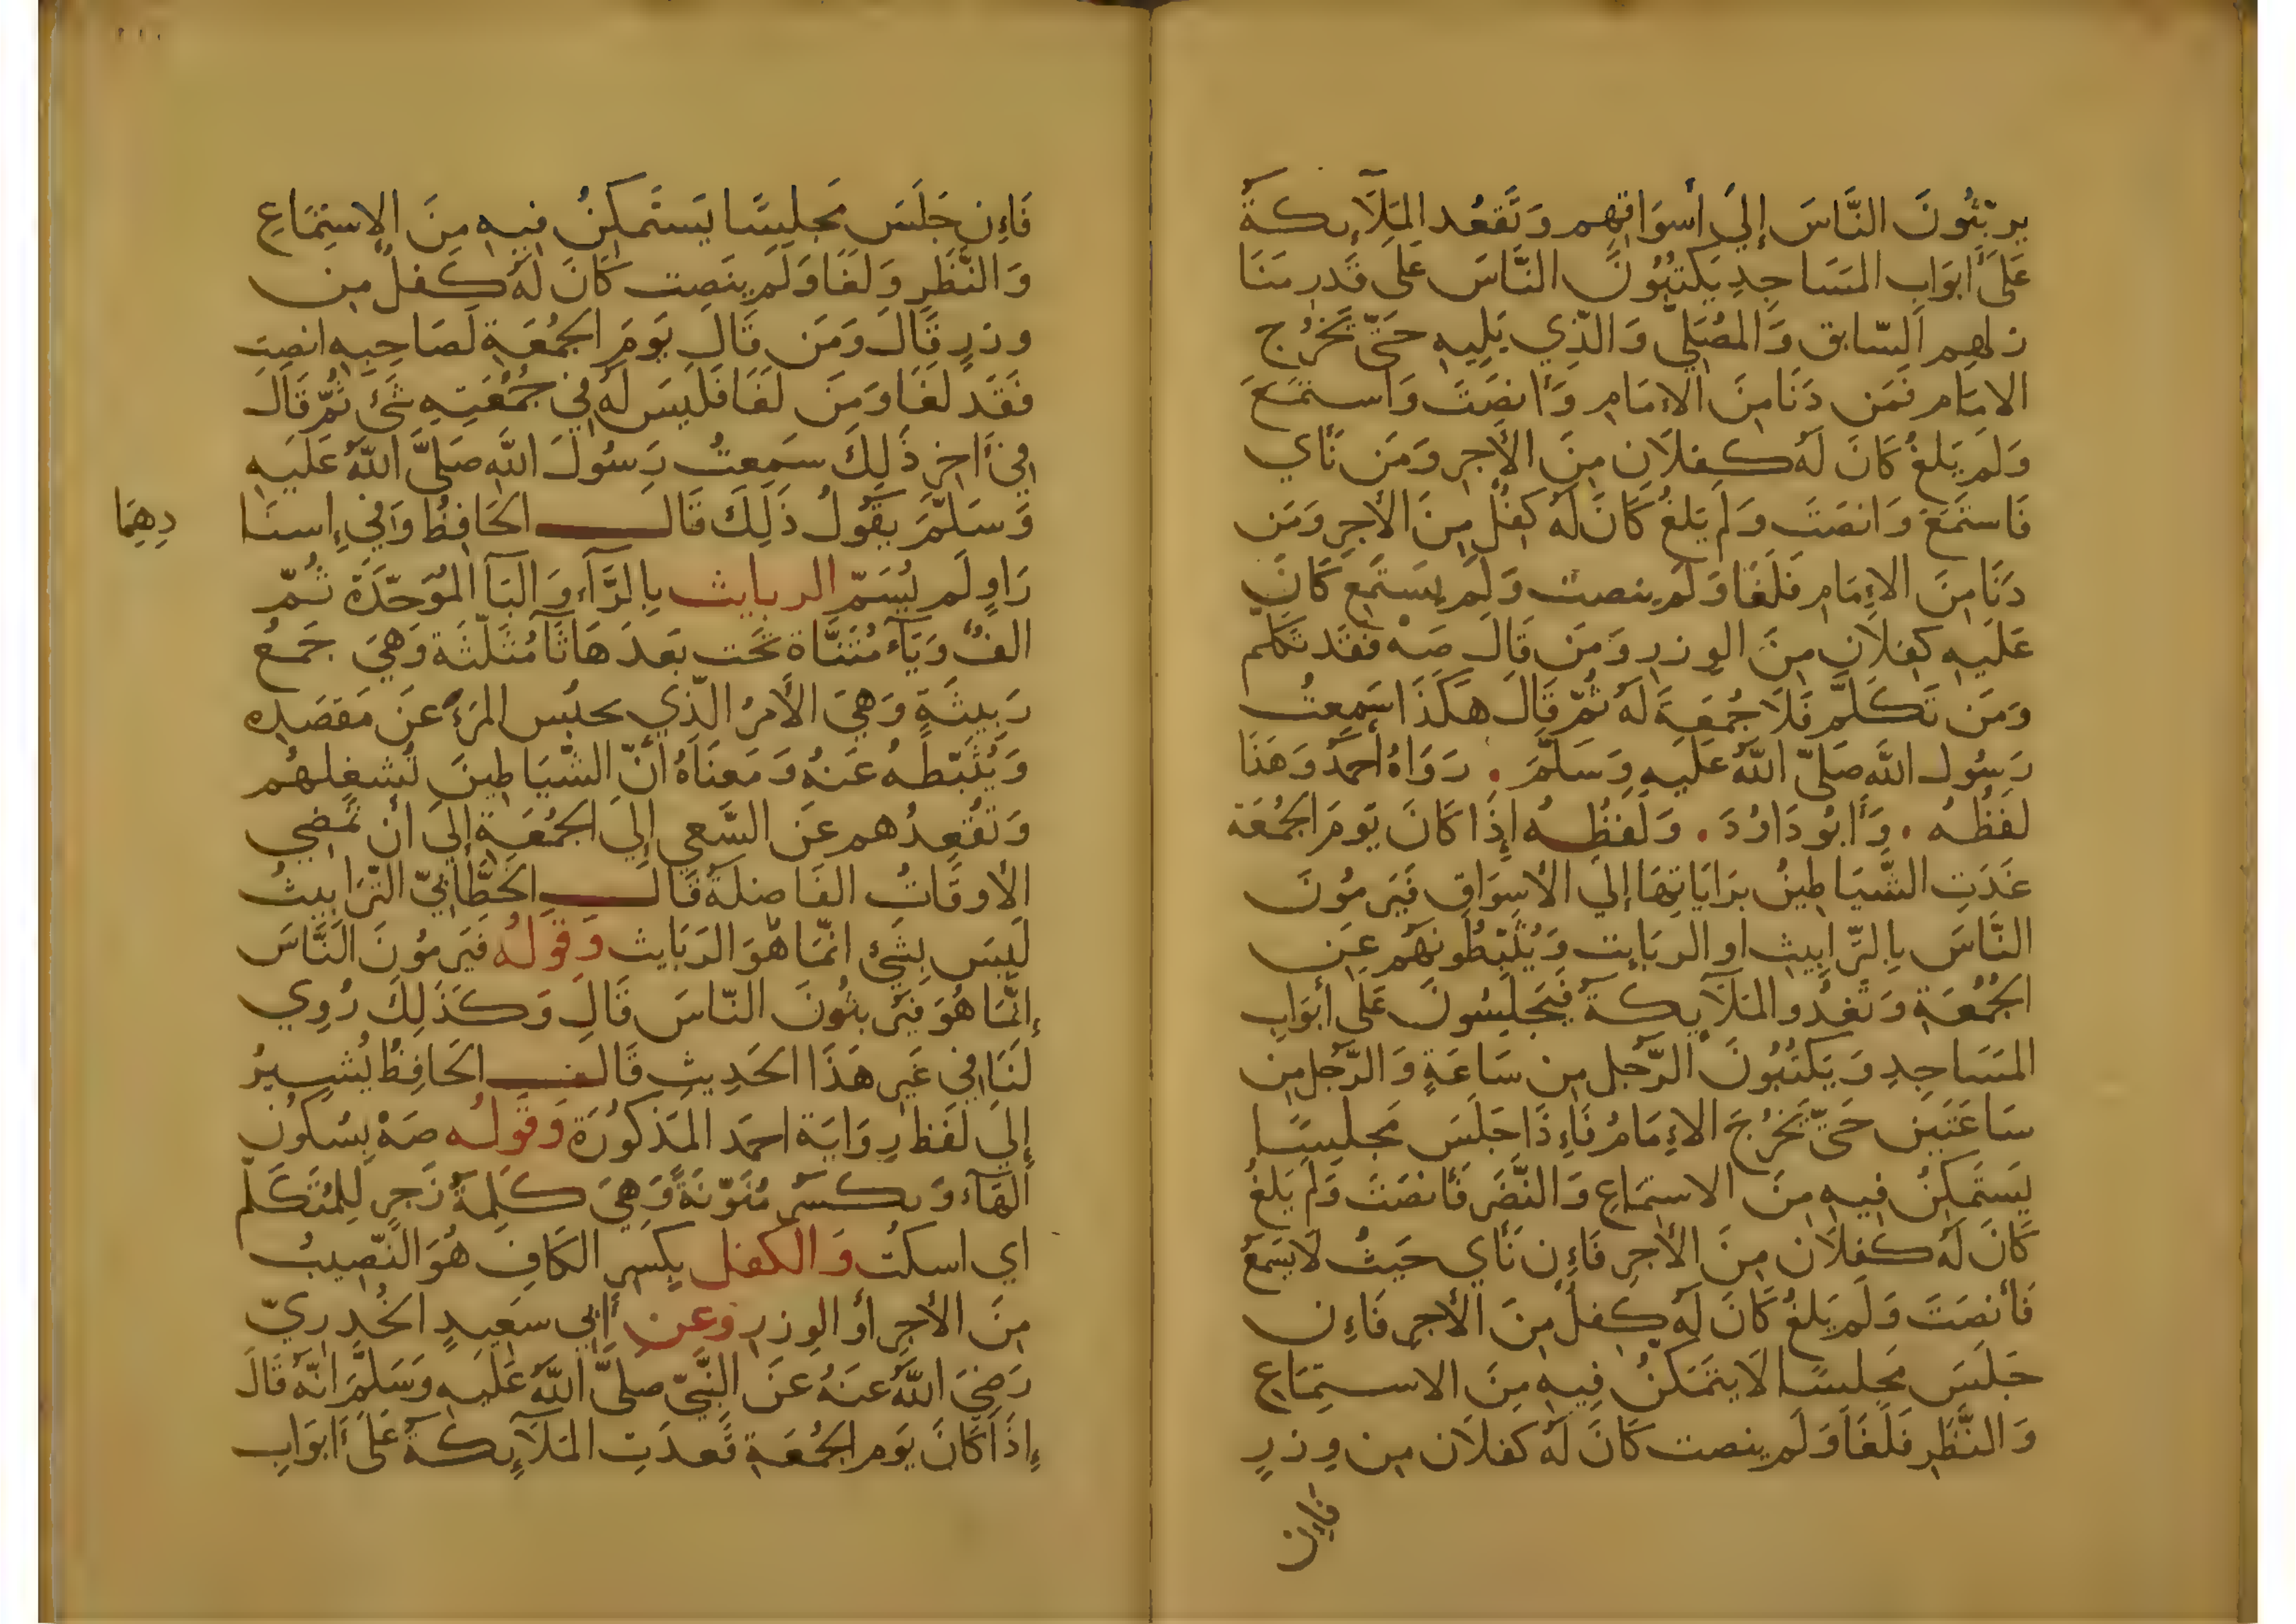 يربثُونَ النَّاسَ إِلَي أَسوَاقِهِم وَتَقعُد المَلَآئِكَةُ
عَلَىَ أَبوَابِ المَسَاجِدِ يَكتبُونَ النَّاسَ عَلَى قَدرِ مَنَا
زلهِم السّابق وَالمُصَلّي وَالَّذِي يَلِيهِ حَتَّى تَخرُج
الامَام فَمَن دَنَا مِنَ الاِمَامِ وَأَنصَتَ وَاستَمَعَ
وَلَم يَلغُ كَانَ لَهُ كِفلَانِ مِنَ الأَجرِ وَمَن نَأي
فَاستَمَعَ وَانصَتَ وَلَم يَلغُ كَانَ لَهُ كِفلٌ مِنَ الأَجرِ وَمَن
دَنَا مِنَ الاِمَامِ فَلَغَا وَلَم ينصت وَلَم يَستَمِع كَانَ
عَلَيهِ كِفلَانِ مِنَ الوِزرِ وَمَن قَالَ صَه فَقَد تَكَلَّم
وَمَن تَكَلَّم فَلَا جُمُعَةَ لَهُ ثُمَّ قَالَ هَكَذَا سَمِعتُ
رَسُول اللهَ صَلَّى اللهُ عَلَيهِ وَسَلَّمَ . رَوَاهُ أَحمَدُ وَهَذَا
لَفظُهُ . وَأَبُو دَاوُدَ . وَلَفظُهُ إِذَا كَانَ يَومَ الجُمُعَة
غَدَتِ الشَّيَاطِينُ برَايَاتِهَا إِلَي الأَسوَاقِ فَيَرمُونَ
النَّاسَ بِالتّرَابِيثِ او الربَايث وَيُثَبّطُونَهُم عَنِ
الجُمُعَةِ وَتَغدُو المَلَآئِكَةُ فَيَجلِسُونَ عَلَى أَبوَابِ
المَسَاجِدِ وَيَكتُبُونَ الرّجُل مِن سَاعَةٍ وَالرَّجُل مِن
سَاعَتَين حَتَّى يَخرُجَ الاِمَامُ فَاِذَا جَلَسَ مَجلِسًا
يَستَمكِنُ فِيهِ مِنَ الاستِمَاعِ وَالنَّضَرِ فَأَنصَتَ وَلَم يَلغُ
كَانَ لَهُ كفلَان مِنَ الأَجرِ فَاِن نَأَي حَيثُ لَا يَسمَعُ
فَأَنصَتَ وَلَم يَلغُ كَانَ لَهُ كِفلٌ مِنَ الأَجرِ فَاِن
جَلَسَ مَجلِسًا لَا يَتَمَكَّنُ فِيهِ مِنَ الاستِمَاعِ
وَالنَّظَرِ فَلَغَا وَلَم ينصت كَانَ لَهُ كفلَان مِن وِزرٍ
فَاِن
فَاِن جَلَسَ مَجلِسًا يَستَمكِنُ فِيهِ مِنَ الاِستِمَاعِ
وَالنَّظَرِ وَلَغَا وَلَم ينصِت كَانَ لَهُ كفلٌ مِن
وِزرٍ قَالَ وَمَن قَالَ يَومَ الجُمُعَةِ لَصَاحِبِهِ انصِت
فَقَد لَغَا وَمَن لَغَا فَلَيسَ لَهُ فِي جُمُعَتِهِ شَئٌ ثُمَّ قَالَ
فِي أَاخِرِ ذَلِكَ سَمِعتُ رَسُولَ اللهِ صَلَّى اللهُ عَلَيهِ
وَسَلَّمَ يَقُولُ ذَلِكَ قَالَ الحَافِظُ وَفِي إِسنَا
دِهِمَا
رَاوٍ لَم يُسَمّ الربايث بِالرَّآءِ وَالبَآ المُوَحَّدَةِ ثُمّ
الفٌ وَيَآءٌ مُثَنَّاة تَحت بَعدَهَا ثَآ مُثَلّثَة وَهِيَ جَمعُ
رَبِيثَةٍ وَهِيَ الأَمرُ الَّذِي يحبُس المَرءَ عَن مَقصَدِهِ
وَيُثَبّطهُ عَنهُ وَمَعنَاهُ أَنَّ الشّيَاطِينَ تُشغِلهُم
وَتُقعِدُهم عَنِ السَّعيِ إِلَي الجُمُعَةِ إِلَي أَن تَمضِي
الأَوقَاتُ الفَاضِلَةُ قَالَ الخَطَّابِيّ التّرَابِيثُ
لَيسَ بِشَئٍ انّمَا هُوَ الرَبَايث وَقَولُهُ فَيَرمُونَ النَّاسَ
إِنَّمَا هُوَ فَيُربثُونَ النّاسَ قَالَ وَكَذَلِكَ رُوِي
لَنَا فِي غَيرِ هَذَا الحَدِيثِ قَالَ الحَافِظُ يُشِيرُ
إِلَي لَفظِ رِوَايَة احمَد المَذكُورَة وَقَولُه صَهْ بِسُكُونِ
الهَآء وَتكسَر مُنَوّنَةً وَهِيَ كَلِمَةُ زَجرٍ لِلمُتَكَلّم
اي اسكُت وَالكفل بِكَسرِ الكَافِ هُوَ النَّصِيبُ
مِنَ الأَجرِ أَو الوِزرِ وَعَن أَبِي سَعِيدٍ الخُدرِيّ
رَضِيَ اللهُ عَنهُ عَنِ النَّبِيّ صَلَّى اللهُ عَلَيهِ وَسَلَّمَ انّهُ قَالَ
إِذَا كَانَ يَوم الجُمُعَةِ قَعدَتِ المَلَآئِكَةُ عَلَى أَبوَابِ